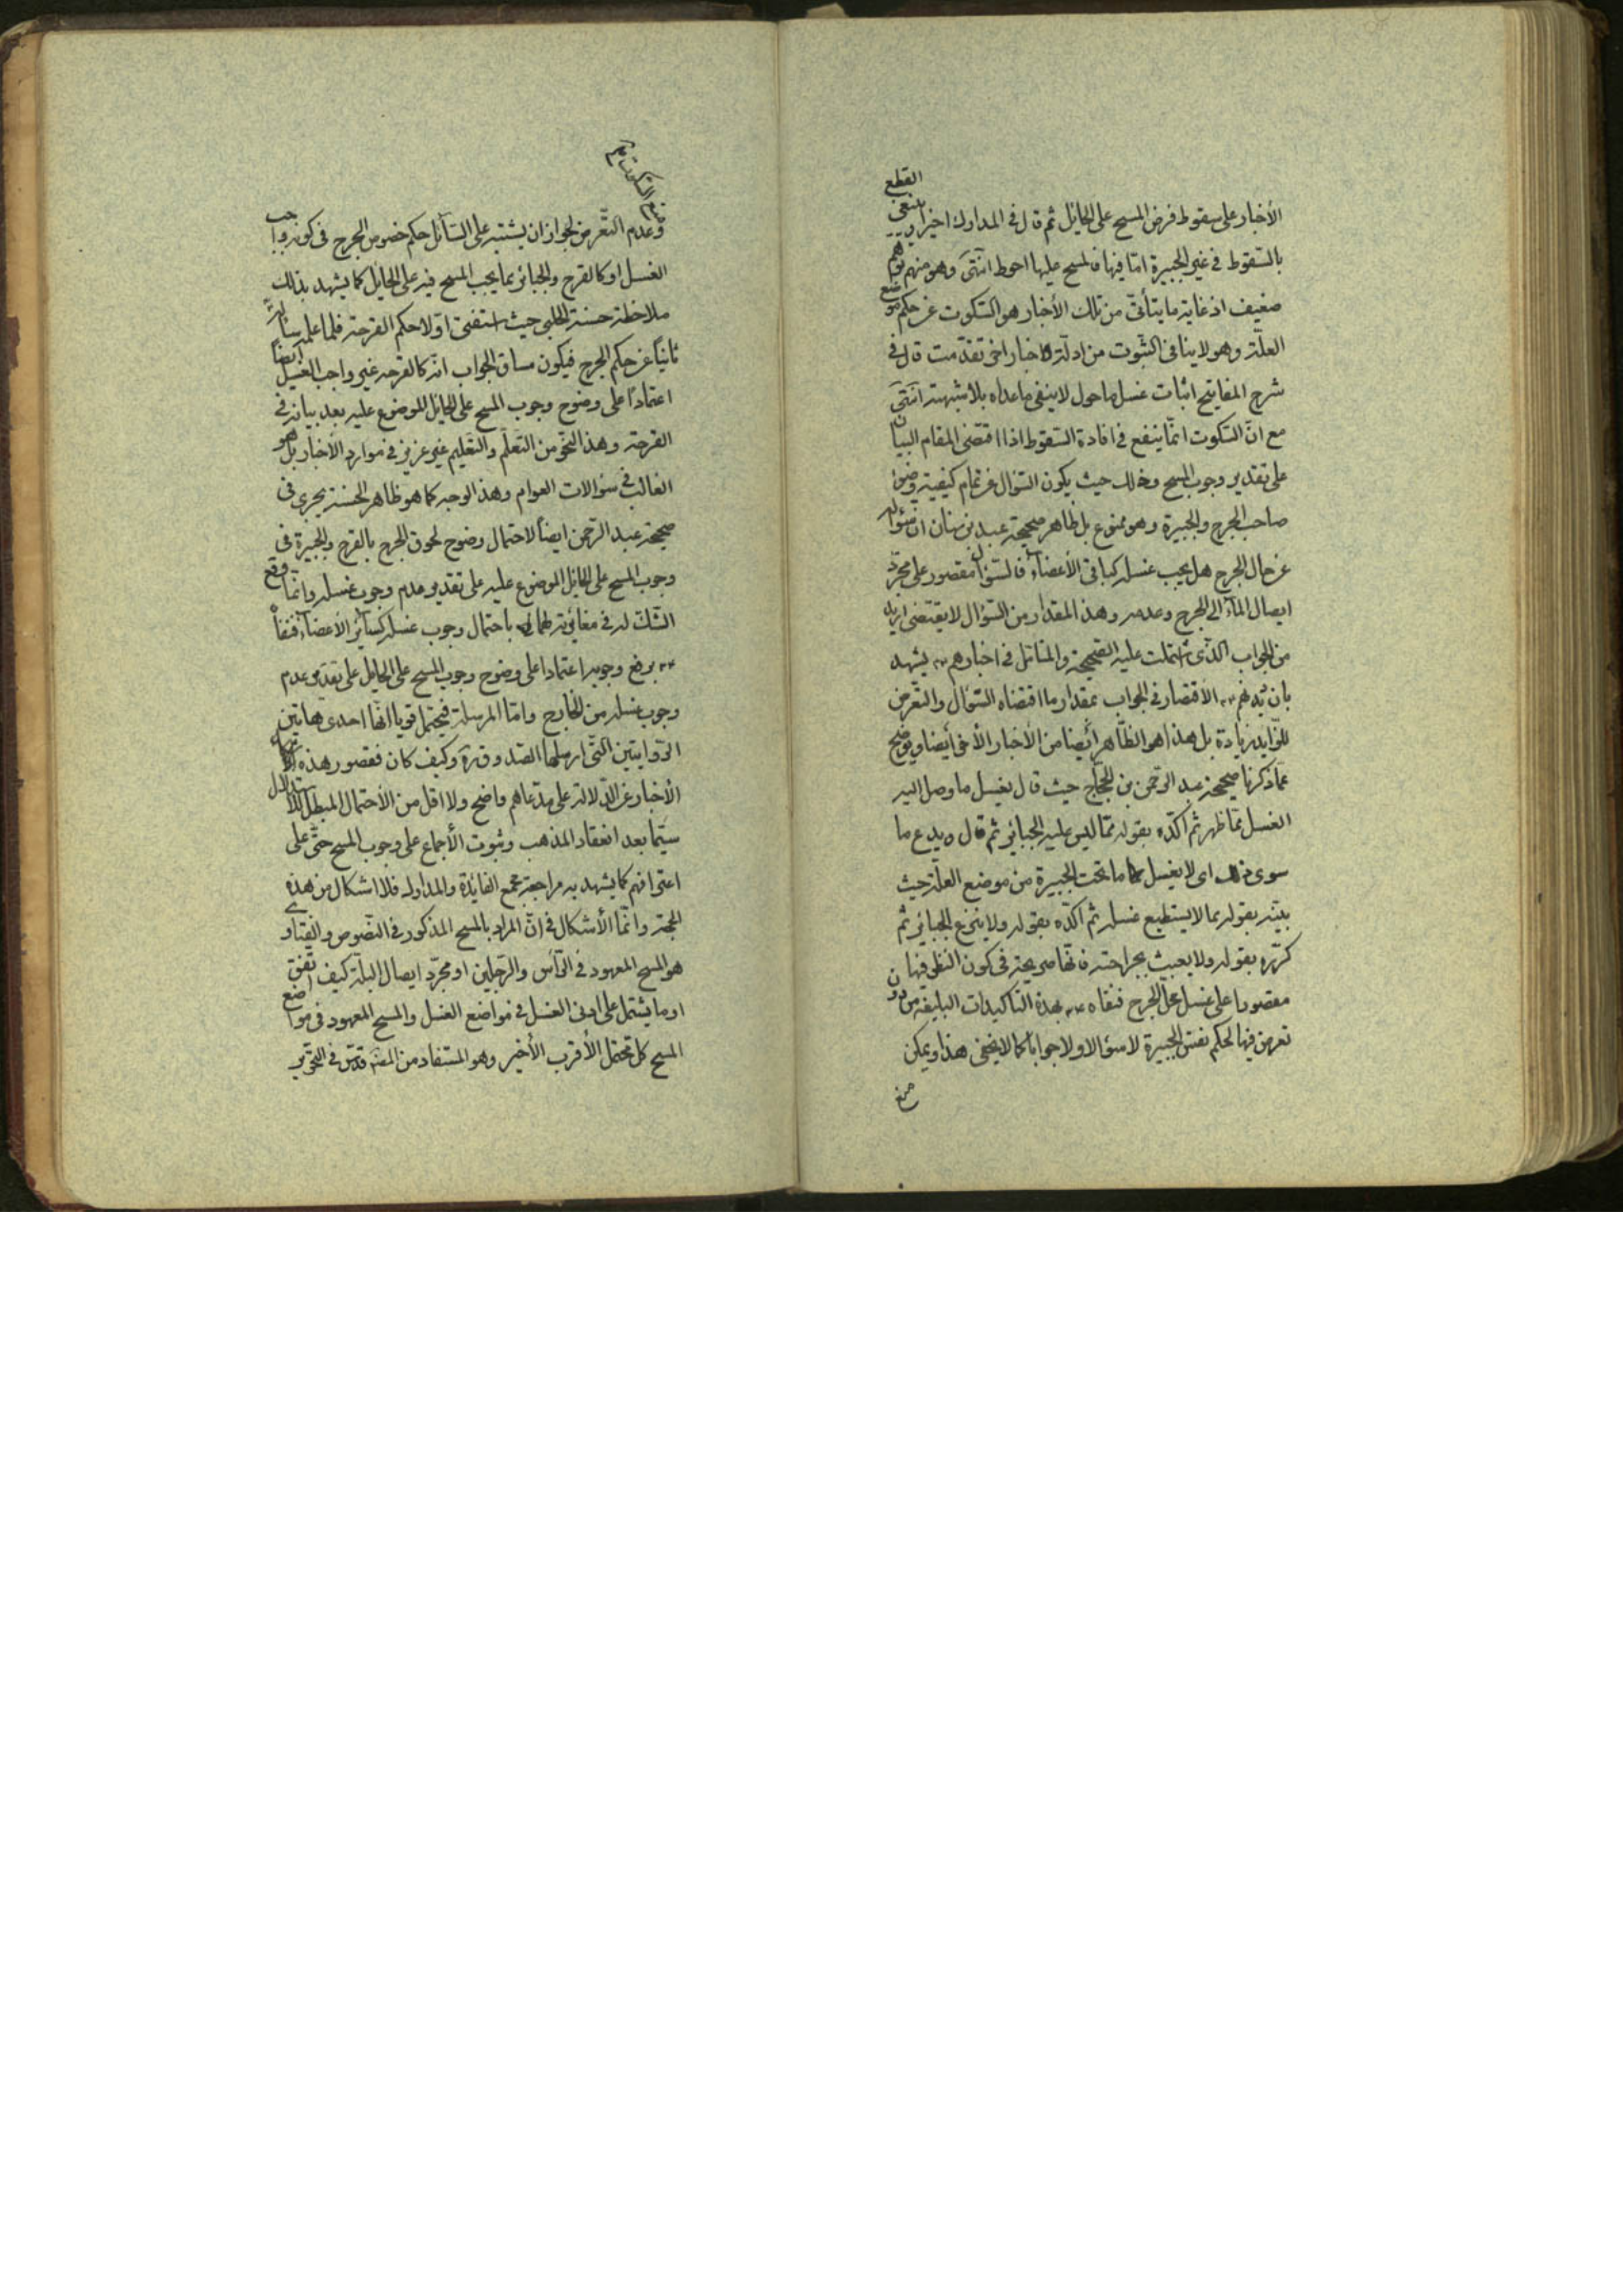 الأخبار على سقوط فرض المسح على الحايل ثم قال فى المدارك اخيرا وينبغى القطع
بالسقوط فى غير الجبيرة امّا فيها فالمسح عليها احوط انتهى وهو منهم توهم
ضعيف اذ غاية ما يتأتى من تلك الأخبار هو السّكوت عن حكم موضع
العلّة وهو لا ينافى الثبوت من ادلّة اخبار اخر تقدّمت قال فى
شرح المفاتيح اثبات غسل ما حول لا ينفى ما عداه بلا شبهة انتهى
مع انّ السّكوت انّما ينفع فى افادة السّقوط اذا اقتضى المقام البيان
على تقدير وجوب المسح وذلك حيث يكون السّؤال عن تمام كيفيته وضوء
صاحب الجرح والجبيرة وهو ممنوع بل ظاهر صحيحة عبد بن سنان ان سؤاله
عن حال الجرح هل يجب غسله كباقى الأعضاء فالسّؤال مقصور على مجرّد
ايصال الماء الى الجرح وعدمه وهذا المقدار من السّؤال لا يقتضى ازيد
من الجواب الّذى اشتملت عليه الصّحيحة والمتأمّل فى اخبارهم ع يشهد
بان ديدنهم ع الاقتصار فى الجواب بمقدار ما اقتضاه السّؤال والتّعرض
للزّايد زيادة بل هذا هو الظّاهر أيضا من الأخبار الأخر أيضا ويوضح
عمّا ذكرنا صحيحة عبد الرحمن بن الحجّاج حيث قال يغسل ما وصل اليه
الغسل ممّا ظهر ثم اكّده بقوله ممّا ليس عليه الجبائر ثم قال ويدع ما
سوى ذلك اى لا يغسل ما تحت الجبيرة من موضع العلّة حيث
بيّنه بقوله بما لا يستطيع غسله ثم اكّده بقوله ولا ينزع الجبائر ثم
كرّره بقوله ولا يعبث بجراحته فانّها صريحة فى كون النظر فيها
مقصورا على غسل محل الجرح فنفاه ع بهذه التاكيدات البليغة من دون
تعرض فيها لحكم نفس الجبيرة لا سؤالا ولا جوابا كما لا يخفى هذا ويمكن
منع
منع السّكوت
وعدم التّعرض لجواز ان يشتبه على السّائل حكم خصوص الجرح فى كونه واجب
الغسل او كالقرح والجبائر بما يجب المسح فيه على الحايل كما يشهد بذلك
ملاحظة حسنة الحلبى حيث استفتى اوّلا حكم القرحة فلما علمه سأله
ثانيًا عن حكم الجرح فيكون مساق الجواب انّه كالقرحه غير واجب الغسل ايضًا
اعتمادًا على وضوح وجوب المسح على الحايل الموضوع عليه بعد بيانه فى
القرحة وهذا النحو من التّعلّم والتّعليم غير عزيز فى موارد الأخبار بل هو
الغالب فى سؤالات العوام وهذا الوجه كما هو ظاهر الحسنة يجرى فى
صحيحة عبد الرّحمن ايضًا لاحتمال وضوح لحوق الجرح بالقرح والجبيرة فى
وجوب المسح على الحايل الموضوع عليه على تقدير عدم وجوب غسله وانّما وقع
الشّك له فى مغائرته لهما باحتمال وجوب غسله كسائر الأعضاء فنفاه
ع برفع وجوبه اعتمادا على وضوح وجوب المسح على الحايل على تقدير عدم
وجوب غسله من الخارج وامّا المرسلة فيحتمل قويا انّها احدى هاتين
الرّوايتين الّتى ارسلها الصّدوق ره وكيف كان فقصور هذه
الأخبار عن الدّلالة على مدّعاهم واضح ولا اقل من الأحتمال المبطل للاستدلال
سيّما بعد انعقاد المذهب وثبوت الأجماع على وجوب المسح حتّى على
اعترافهم كما يشهد به مراجعة مجمع الفائدة والمدارك فلا اشكال من هذه
الجهة وانّما الأشكال فى انّ المراد بالمسح المذكور فى النّصوص والفتاوى
هو المسح المعهود فى الرّأس والرّجلين او مجرّد ايصال البلّة كيف اتّفق
او ما يشتمل على ادنى الغسل فى مواضع الغسل والمسح المعهود فى مواضع
المسح كل محتمل الأقرب الأخير وهو المستفاد من المصنّف قدّس فى التحرير